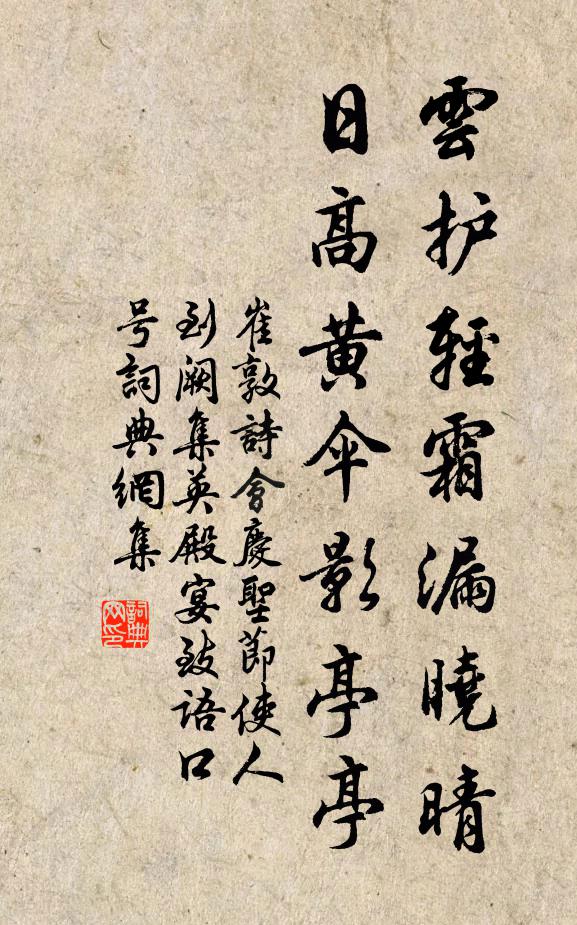 雲护輕霜漏曉晴
日高黄伞影亭亭
崔敦詩會慶聖節使人
到阙集英殿宴致語口
号詞典網集
詞典
网印